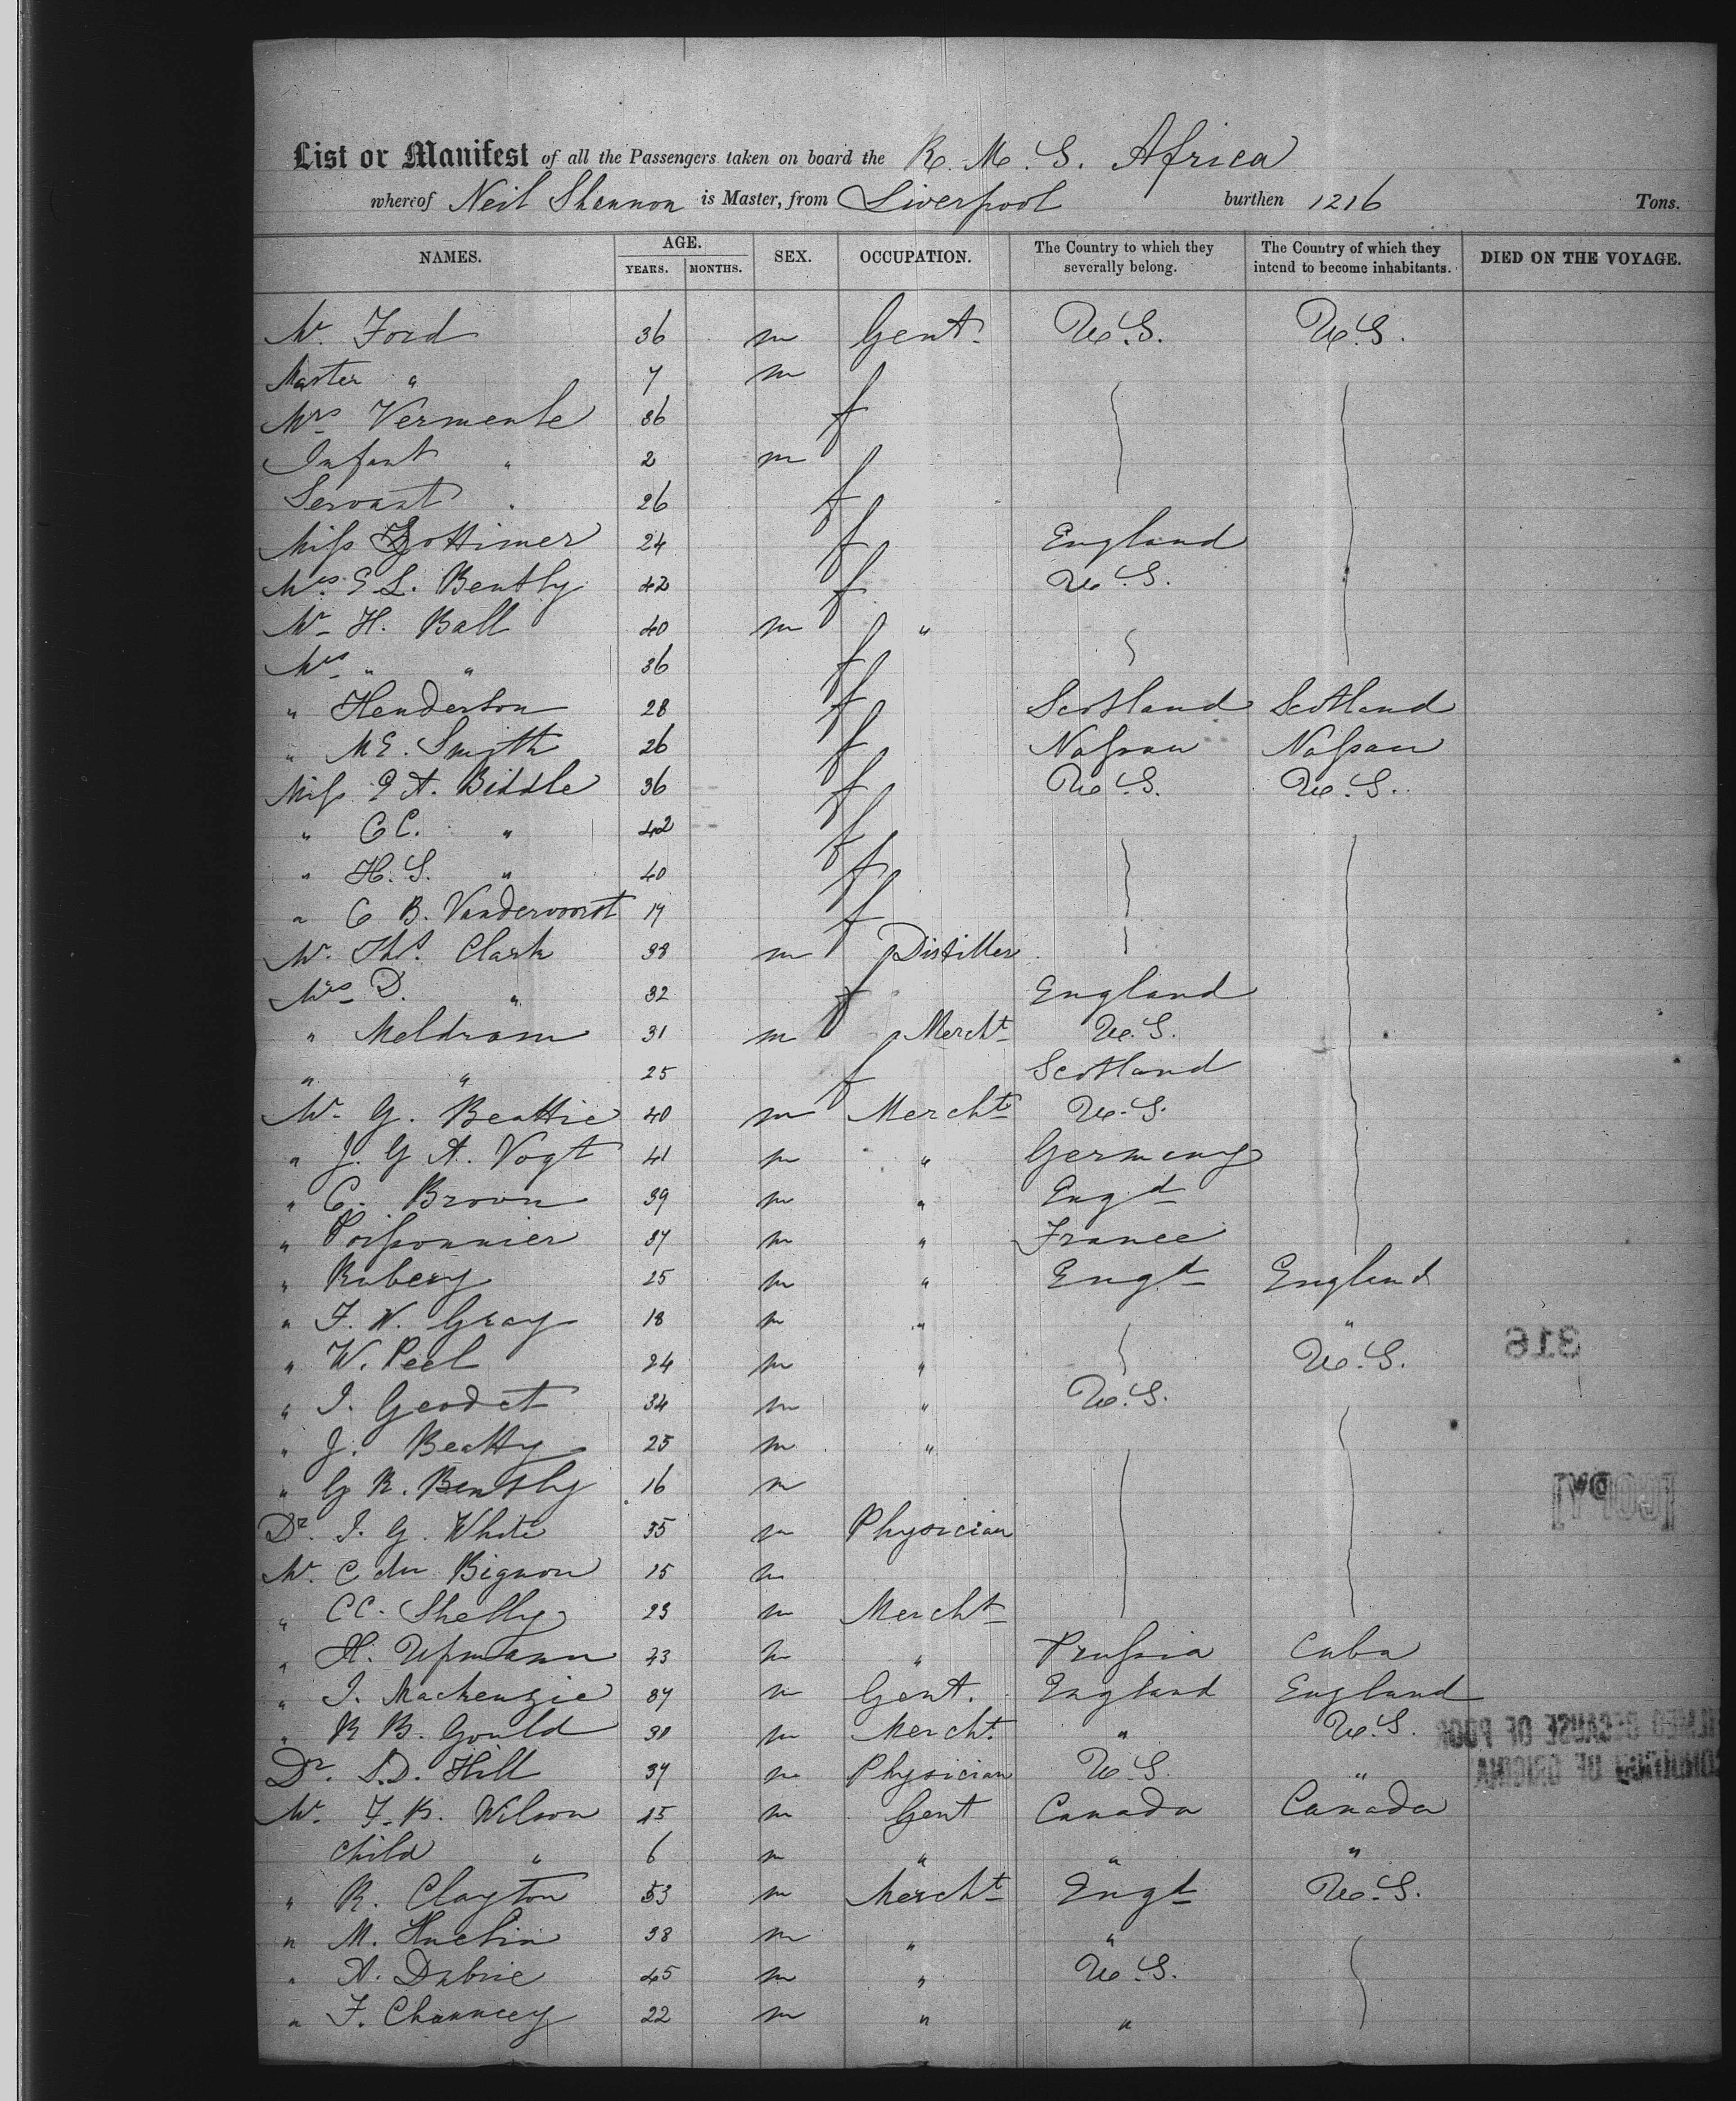 List or Manifest of all the Passengers taken on board the R. M. S. Africa
whereof Neil Shannon is Master, from Liverpool burthen 1216 Tons.
NAMES. AGE. YEARS. MONTHS. SEX. OCCUPATION. The Country to which they severally belong. The Country of which they intend to become inhabitants. DIED ON THE VOYAGE.
Mr. Ford 36 m Gent. U.S. U.S.
Master " 7 m
Mrs Vermeule 36 f
Infant " 2 m
Servant " 26 f
Miss 24 f England
Mrs. E L. Bently 42 f U.S.
Mr H. Ball 40 m "
Mrs " " 36 f
" Henderson 28 f Scotland Scotland
" M E. Smyth 26 f Nassau Nassau
Miss E A. Biddle 36 f U.S. U.S.
" C C. " 42 f
" H. S. " 40 f
" C B. Vandervoorst 17 f
Mr. Thos. Clark 38 m Distiller
Mrs D. " 32 f England
" Meldrom 31 m Mercht U.S.
" " 25 f Scotland
Mr. G. Beattie 40 m Mercht U.S.
" J. G A. Vogt 41 m " Germany
" C. Brown 39 m " Engd
" Poissonnier 37 m " France
" Rubery 25 m " Engd England
" F. W. Gray 18 m " "
" W. Peel 24 m " U.S.
" I. Geodet 34 m " U.S.
" J. Beatty 25 m "
" G R. Bently 16 m
Dr. I. G. White 35 m Physician
Mr. C du Bignon 15 m
" C C. Shelly 23 m Mercht
" H. Upmann 43 m " Prussia Cuba
" I. Mackenzie 37 m Gent. England England
" R B. Gould 30 m Mercht. " U.S.
Dr. S. D. Hill 37 m Physician U.S. "
Mr. F. B. Wilson 45 m Gent Canada Canada
Child " 6 m " " "
" R. Clayton 53 m Mercht Engd U.S.
" M. 38 m " "
" A. Dubrie 45 m " U.S.
" F. Chauncey 22 m " "
316
[COPY]